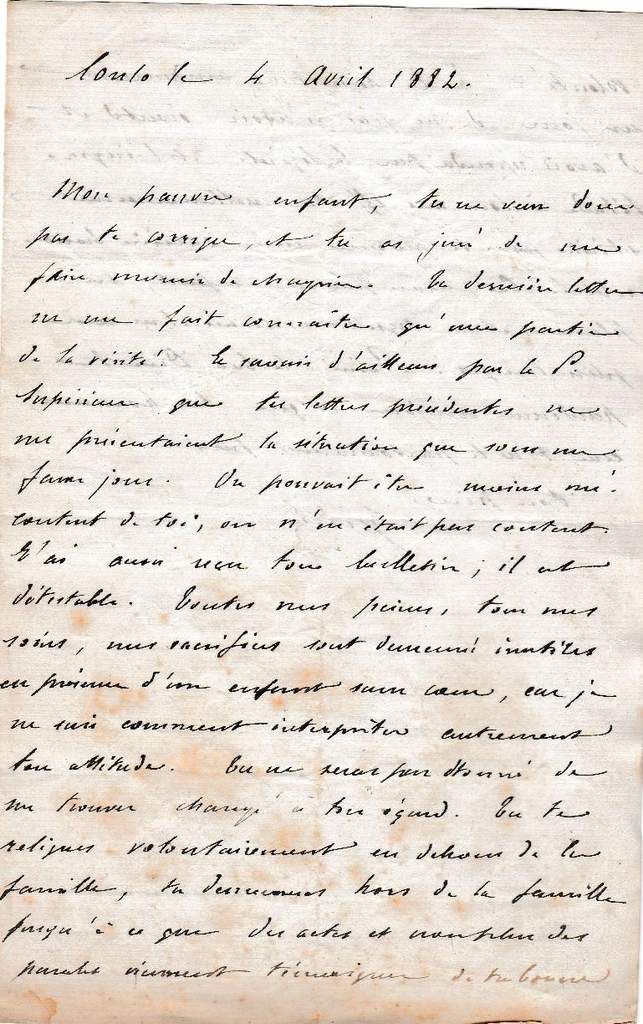 le 4 Avril 1882.
Mon pauvre enfant, tu ne veux donc
pas te corriger, et tu as juré de me
faire mourir de chagrin. Ta dernière lettre
ne me fait connaître qu'une partie
de la vérité. Je savais d'ailleurs par le P.
Supérieur que tes lettres précédentes ne
me présentaient la situation que sous un
faux jour. On pouvait être moins mé-
content de toi, on n'en était pas content.
J'ai aussi reçu ton bulletin ; il est
détestable. Toutes nos peines, tous nos
soins, nos sacrifices sont demeurés inutiles
en présence d'un enfant sans cœur, car je
ne sais comment interpréter autrement
ton attitude. Tu ne seras pas étonné de
me trouver changé à ton égard. Tu te
relègues volontairement en dehors de la
famille, tu demeures hors de la famille
jusqu'à ce que des actes et non plus des
paroles viennent témoigner de ta bonne